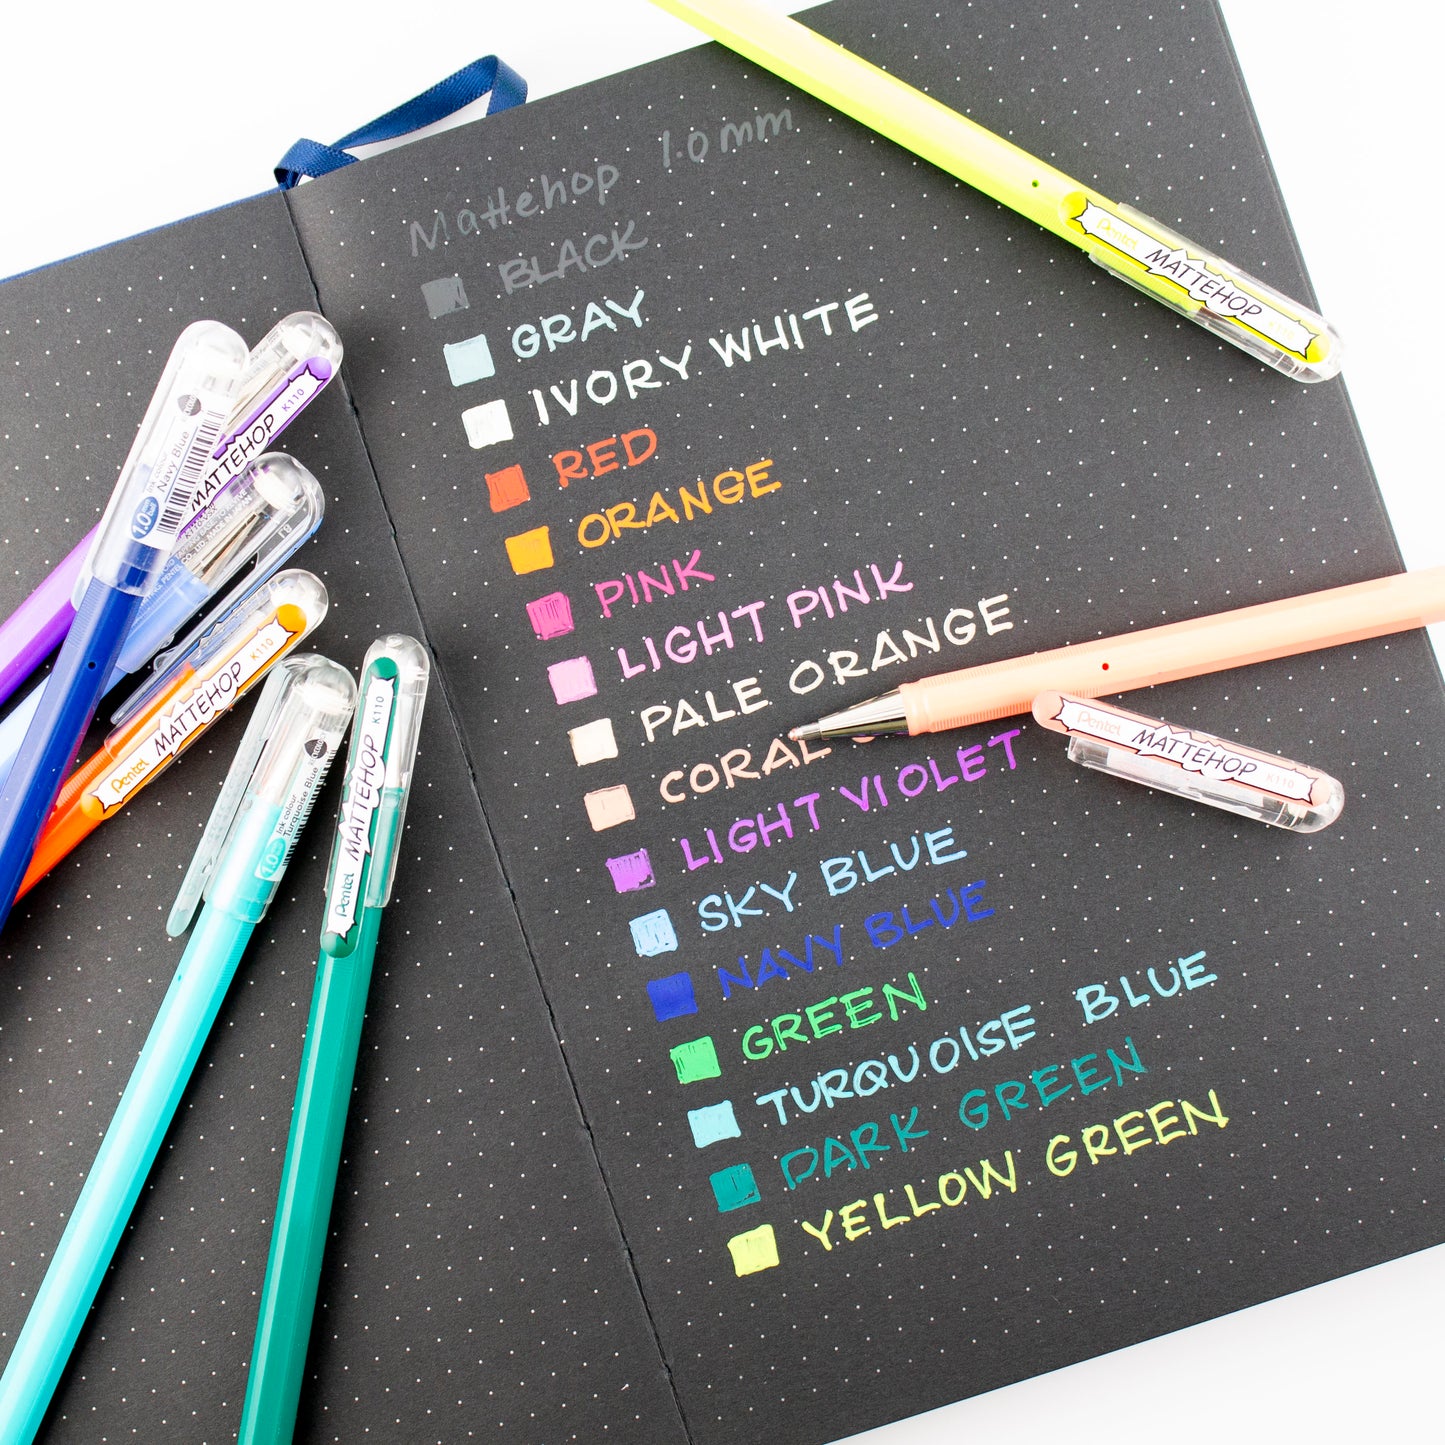 Mattehop 1.0mm
BLACK
GRAY
IVORY WHITE
RED
ORANGE
PINK
LIGHT PINK
PALE ORANGE
CORAL
LIGHT VIOLET
SKY BLUE
NAVY BLUE
GREEN
TURQUOISE BLUE
DARK GREEN
YELLOW GREEN
Pentel MATTEHOP K110
Pentel MATTEHOP K110
MATTEHOP K110
1.0 Ink colour
Navy Blue
Pentel MATTEHOP K110
1.0 Ink colour
Turquoise Blue
Pentel MATTEHOP K110